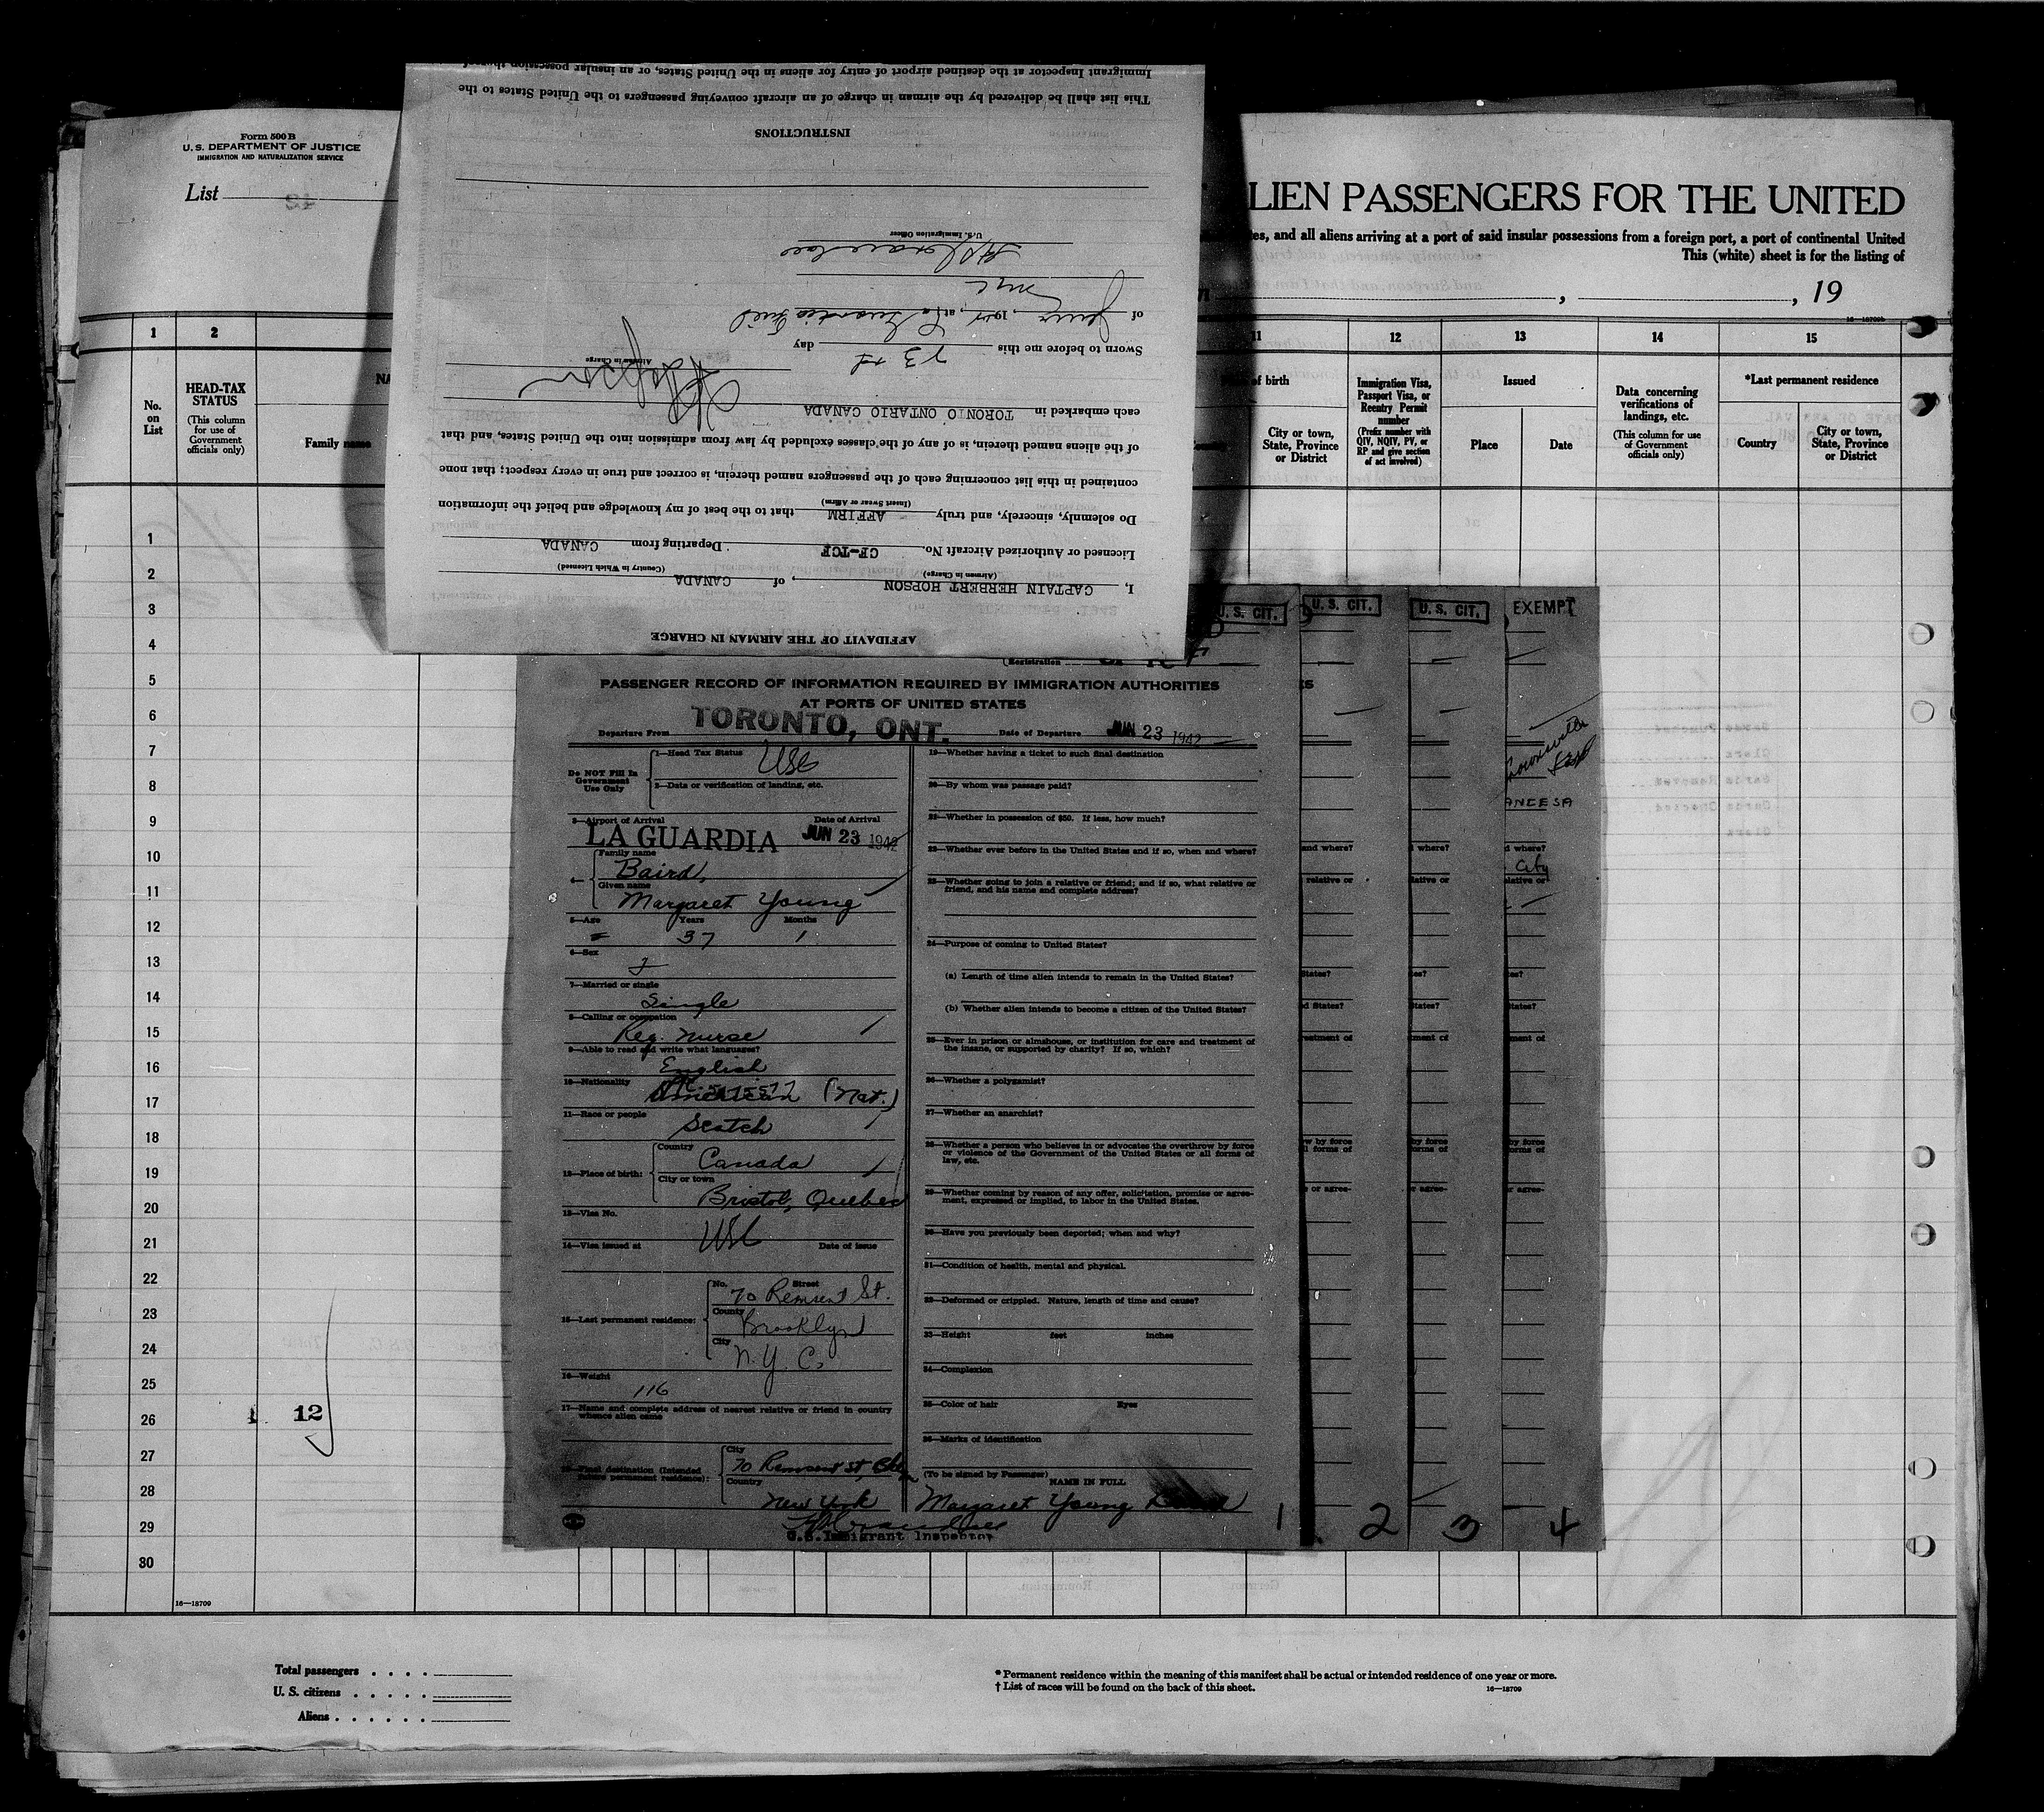 Form 500 B
U. S. DEPARTMENT OF JUSTICE
IMMIGRATION AND NATURALIZATION SERVICE
List
LIEN PASSENGERS FOR THE UNITED
tes, and all aliens arriving at a port of said insular possessions from a foreign port, a port of continental United
This (white) sheet is for the listing of
, , 19
16—18709b
1 2 11 12 13 14 15
No. on List
HEAD-TAX STATUS
(This column for use of Government officials only)
NA
Family name
of birth
City or town, State, Province or District
Immigration Visa, Passport Visa, or Reentry Permit number
(Prefix number with QIV, NQIV, PV, or RP and give section of act involved)
Issued
Place
Date
Data concerning verifications of landings, etc.
(This column for use of Government officials only)
*Last permanent residence
Country
City or town, State, Province or District
1
2
3
4
5
6
7
8
9
10
11
12
13
14
15
16
17
18
19
20
21
22
23
24
25
26
27
28
29
30
1 12
16—18709
Total passengers
U. S. citizens
Aliens
* Permanent residence within the meaning of this manifest shall be actual or intended residence of one year or more.
† List of races will be found on the back of this sheet.
16—18709
AFFIDAVIT OF THE AIRMAN IN CHARGE
I, CAPTAIN HERBERT HOPSON, of CANADA
(Airman in Charge) (Country in Which Licensed)
Licensed or Authorized Aircraft No. CF-TCF Departing from CANADA
Do solemnly, sincerely, and truly AFFIRM that to the best of my knowledge and belief the information
(Insert Swear or Affirm)
contained in this list concerning each of the passengers named therein, is correct and true in every respect; that none
of the aliens named therein, is of any of the classes excluded by law from admission into the United States, and that
each embarked in TORONTO ONTARIO CANADA
Airman in Charge
Sworn to before me this 23rd day
of June, 194 , at La Guardia Field
NYC
U.S. Immigration Officer
INSTRUCTIONS
This list shall be delivered by the airman in charge of an aircraft conveying passengers to the United States to the
Immigrant Inspector at the destined airport of entry for aliens in the United States, or an insular possession
(Registration
U. S. CIT.
U. S. CIT.
U. S. CIT.
EXEMPT
PASSENGER RECORD OF INFORMATION REQUIRED BY IMMIGRATION AUTHORITIES
AT PORTS OF UNITED STATES
Departure From TORONTO, ONT. Date of Departure JUN 23 1942
Do NOT Fill In Government Use Only
1—Head Tax Status USC
2—Data or verification of landing, etc.
3—Airport of Arrival Date of Arrival
LA GUARDIA JUN 23 1942
4— Family name
Baird,
Given name
Margaret Young
5—Age Years Months
37 1
6—Sex
f
7—Married or single
Single
8—Calling or occupation
Reg. Nurse
9—Able to read and write what languages?
English
10—Nationality American (Nat.)
11—Race or people
Scotch
12—Place of birth: Country
Canada
City or town
Bristol, Quebec
13—Visa No.
USC
14—Visa issued at Date of issue
15—Last permanent residence: No. Street
70 Remsen St.
County
Brooklyn
City
N.Y.C.
16—Weight
116
17—Name and complete address of nearest relative or friend in country whence alien came
18—Final destination (Intended future permanent residence): City
70 Remsen St,
Country
New York
U.S. Immigrant Inspector
19—Whether having a ticket to such final destination
20—By whom was passage paid?
21—Whether in possession of $50. If less, how much?
22—Whether ever before in the United States and if so, when and where?
23—Whether going to join a relative or friend; and if so, what relative or friend, and his name and complete address?
24—Purpose of coming to United States?
(a) Length of time alien intends to remain in the United States?
(b) Whether alien intends to become a citizen of the United States?
25—Ever in prison or almshouse, or institution for care and treatment of the insane, or supported by charity? If so, which?
26—Whether a polygamist?
27—Whether an anarchist?
28—Whether a person who believes in or advocates the overthrow by force or violence of the Government of the United States or all forms of law, etc.
29—Whether coming by reason of any offer, solicitation, promise or agreement, expressed or implied, to labor in the United States.
30—Have you previously been deported; when and why?
31—Condition of health, mental and physical.
32—Deformed or crippled. Nature, length of time and cause?
33—Height feet inches
34—Complexion
35—Color of hair Eyes
36—Marks of identification
(To be signed by Passenger) NAME IN FULL
Margaret Young Baird
1 2 3 4